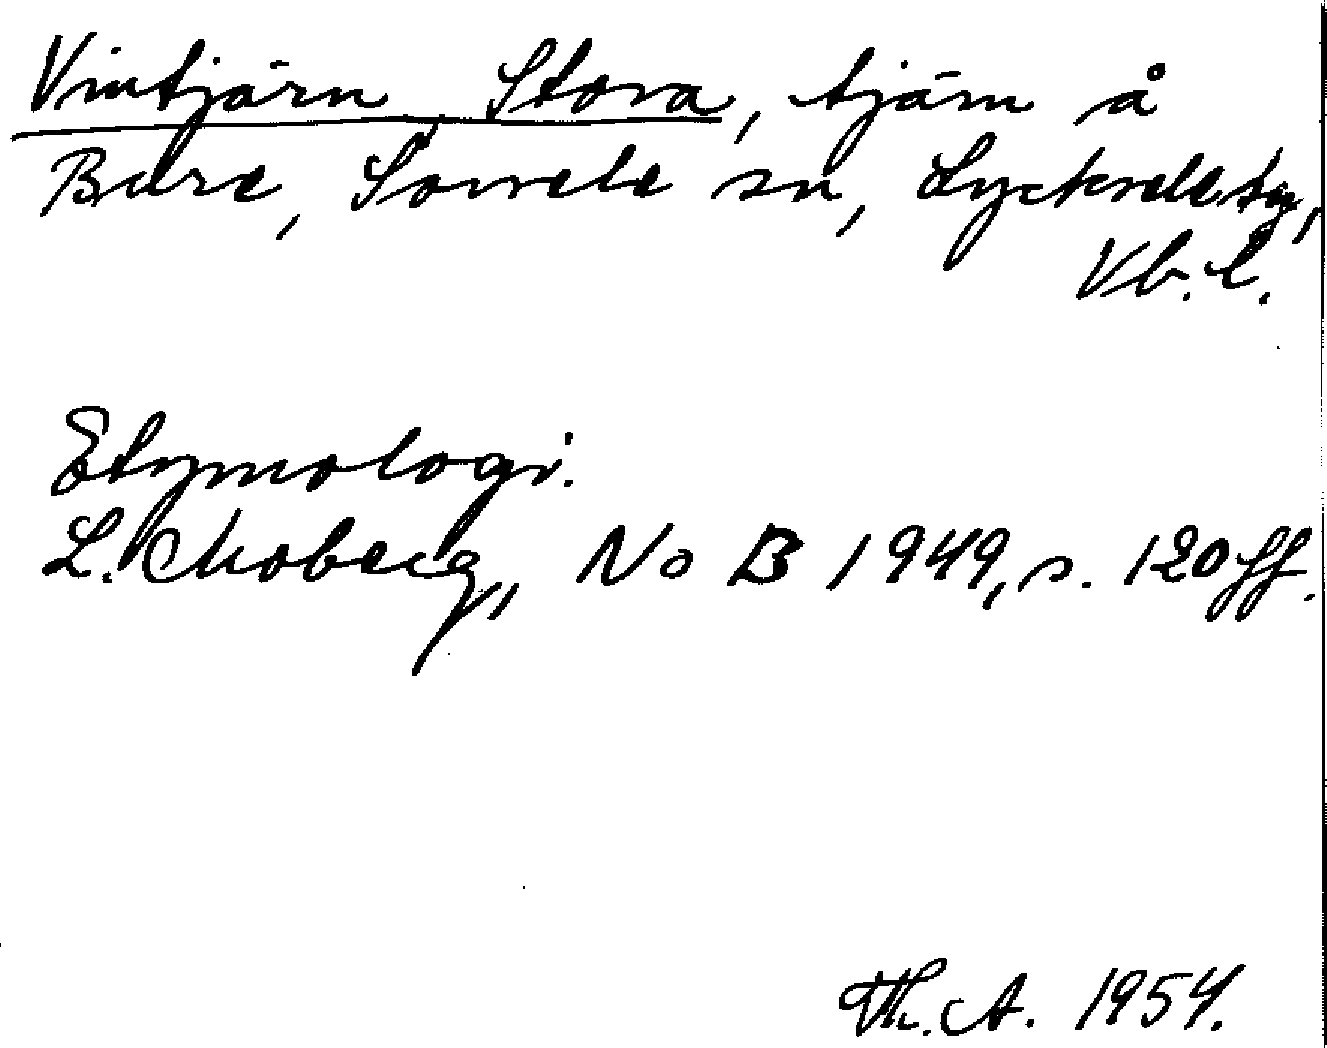 Vintjärn, Stora, tjärn å
Bure, Sorsele sn, Lycksele tg,
Vb. l.
Etymologi.
L. Moberg, NoB 1949, s. 120 ff.
Th. A. 1954.